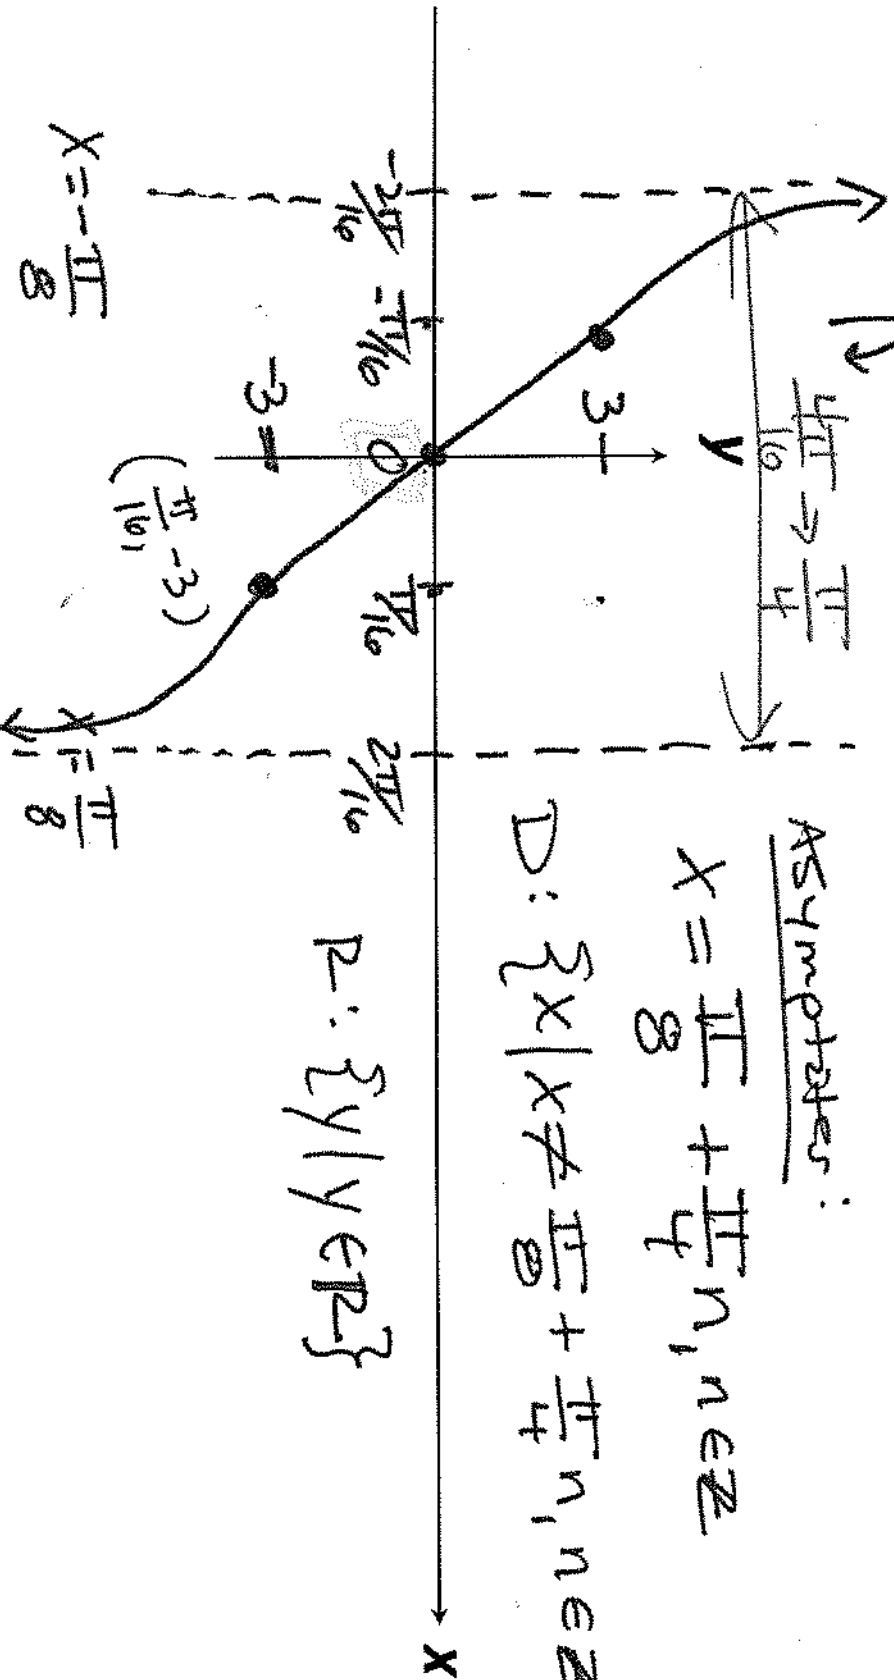 4π/16 → π/4
y
3
-2π/16
-π/16
0
π/16
2π/16
x
-3
(π/16, -3)
x = -π/8
x = π/8
Asymptotes:
x = π/8 + π/4 n, n ∈ ℤ
D: {x | x ≠ π/8 + π/4 n, n ∈ ℤ
R: {y | y ∈ ℝ}